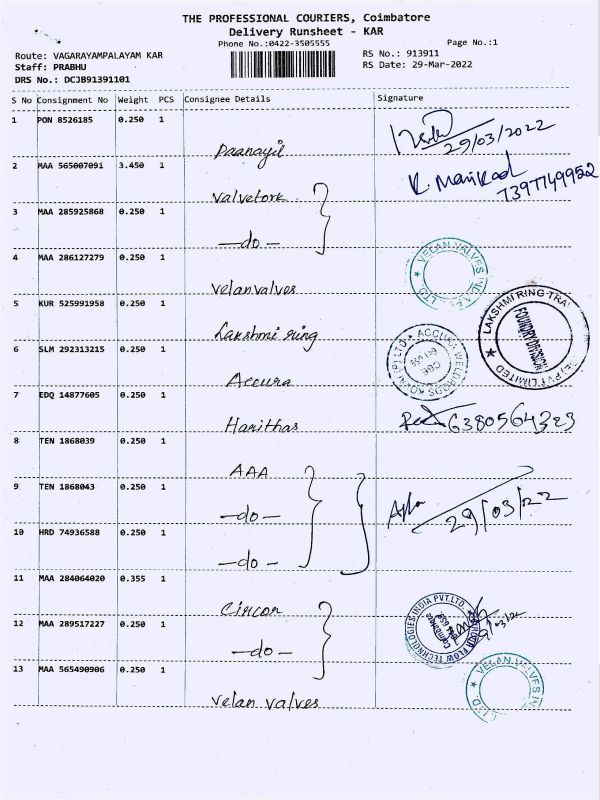 THE PROFESSIONAL COURIERS, Coimbatore
Delivery Runsheet - KAR
Phone No.:0422-3505555
Page No.:1
Route: VAGARAYAMPALAYAM KAR
RS No.: 913911
Staff: PRABHU
RS Date: 29-Mar-2022
DRS No.: DCJB91391101
S No Consignment No Weight PCS Consignee Details Signature
1 PON 8526185 0.250 1
Paanayil 29/03/2022
2 MAA 565007091 3.450 1
valvetork K. Manikad 7397749952
3 MAA 285925868 0.250 1
-do-
4 MAA 286127279 0.250 1
velanvalves VELAN VALVES IND LTD.
5 KUR 525991958 0.250 1
Lakshmi ring LAKSHMI RING TRA (E) PVT LIMITED FOUNDRY DIVISION
6 SLM 292313215 0.250 1
Accura ACCURA WELDRODS KOVAI (P) LTD CBE 641 659
7 EDQ 14877605 0.250 1
Harithas 6380564323
8 TEN 1868039 0.250 1
AAA
9 TEN 1868043 0.250 1
-do- 29/03/22
10 HRD 74936588 0.250 1
-do-
11 MAA 284064020 0.355 1
Circor FLOW TECHNOLOGIES INDIA PVT.LTD. Coimbatore
12 MAA 289517227 0.250 1
-do-
13 MAA 565490906 0.250 1
velan valves VELAN VALVES IN LTD.